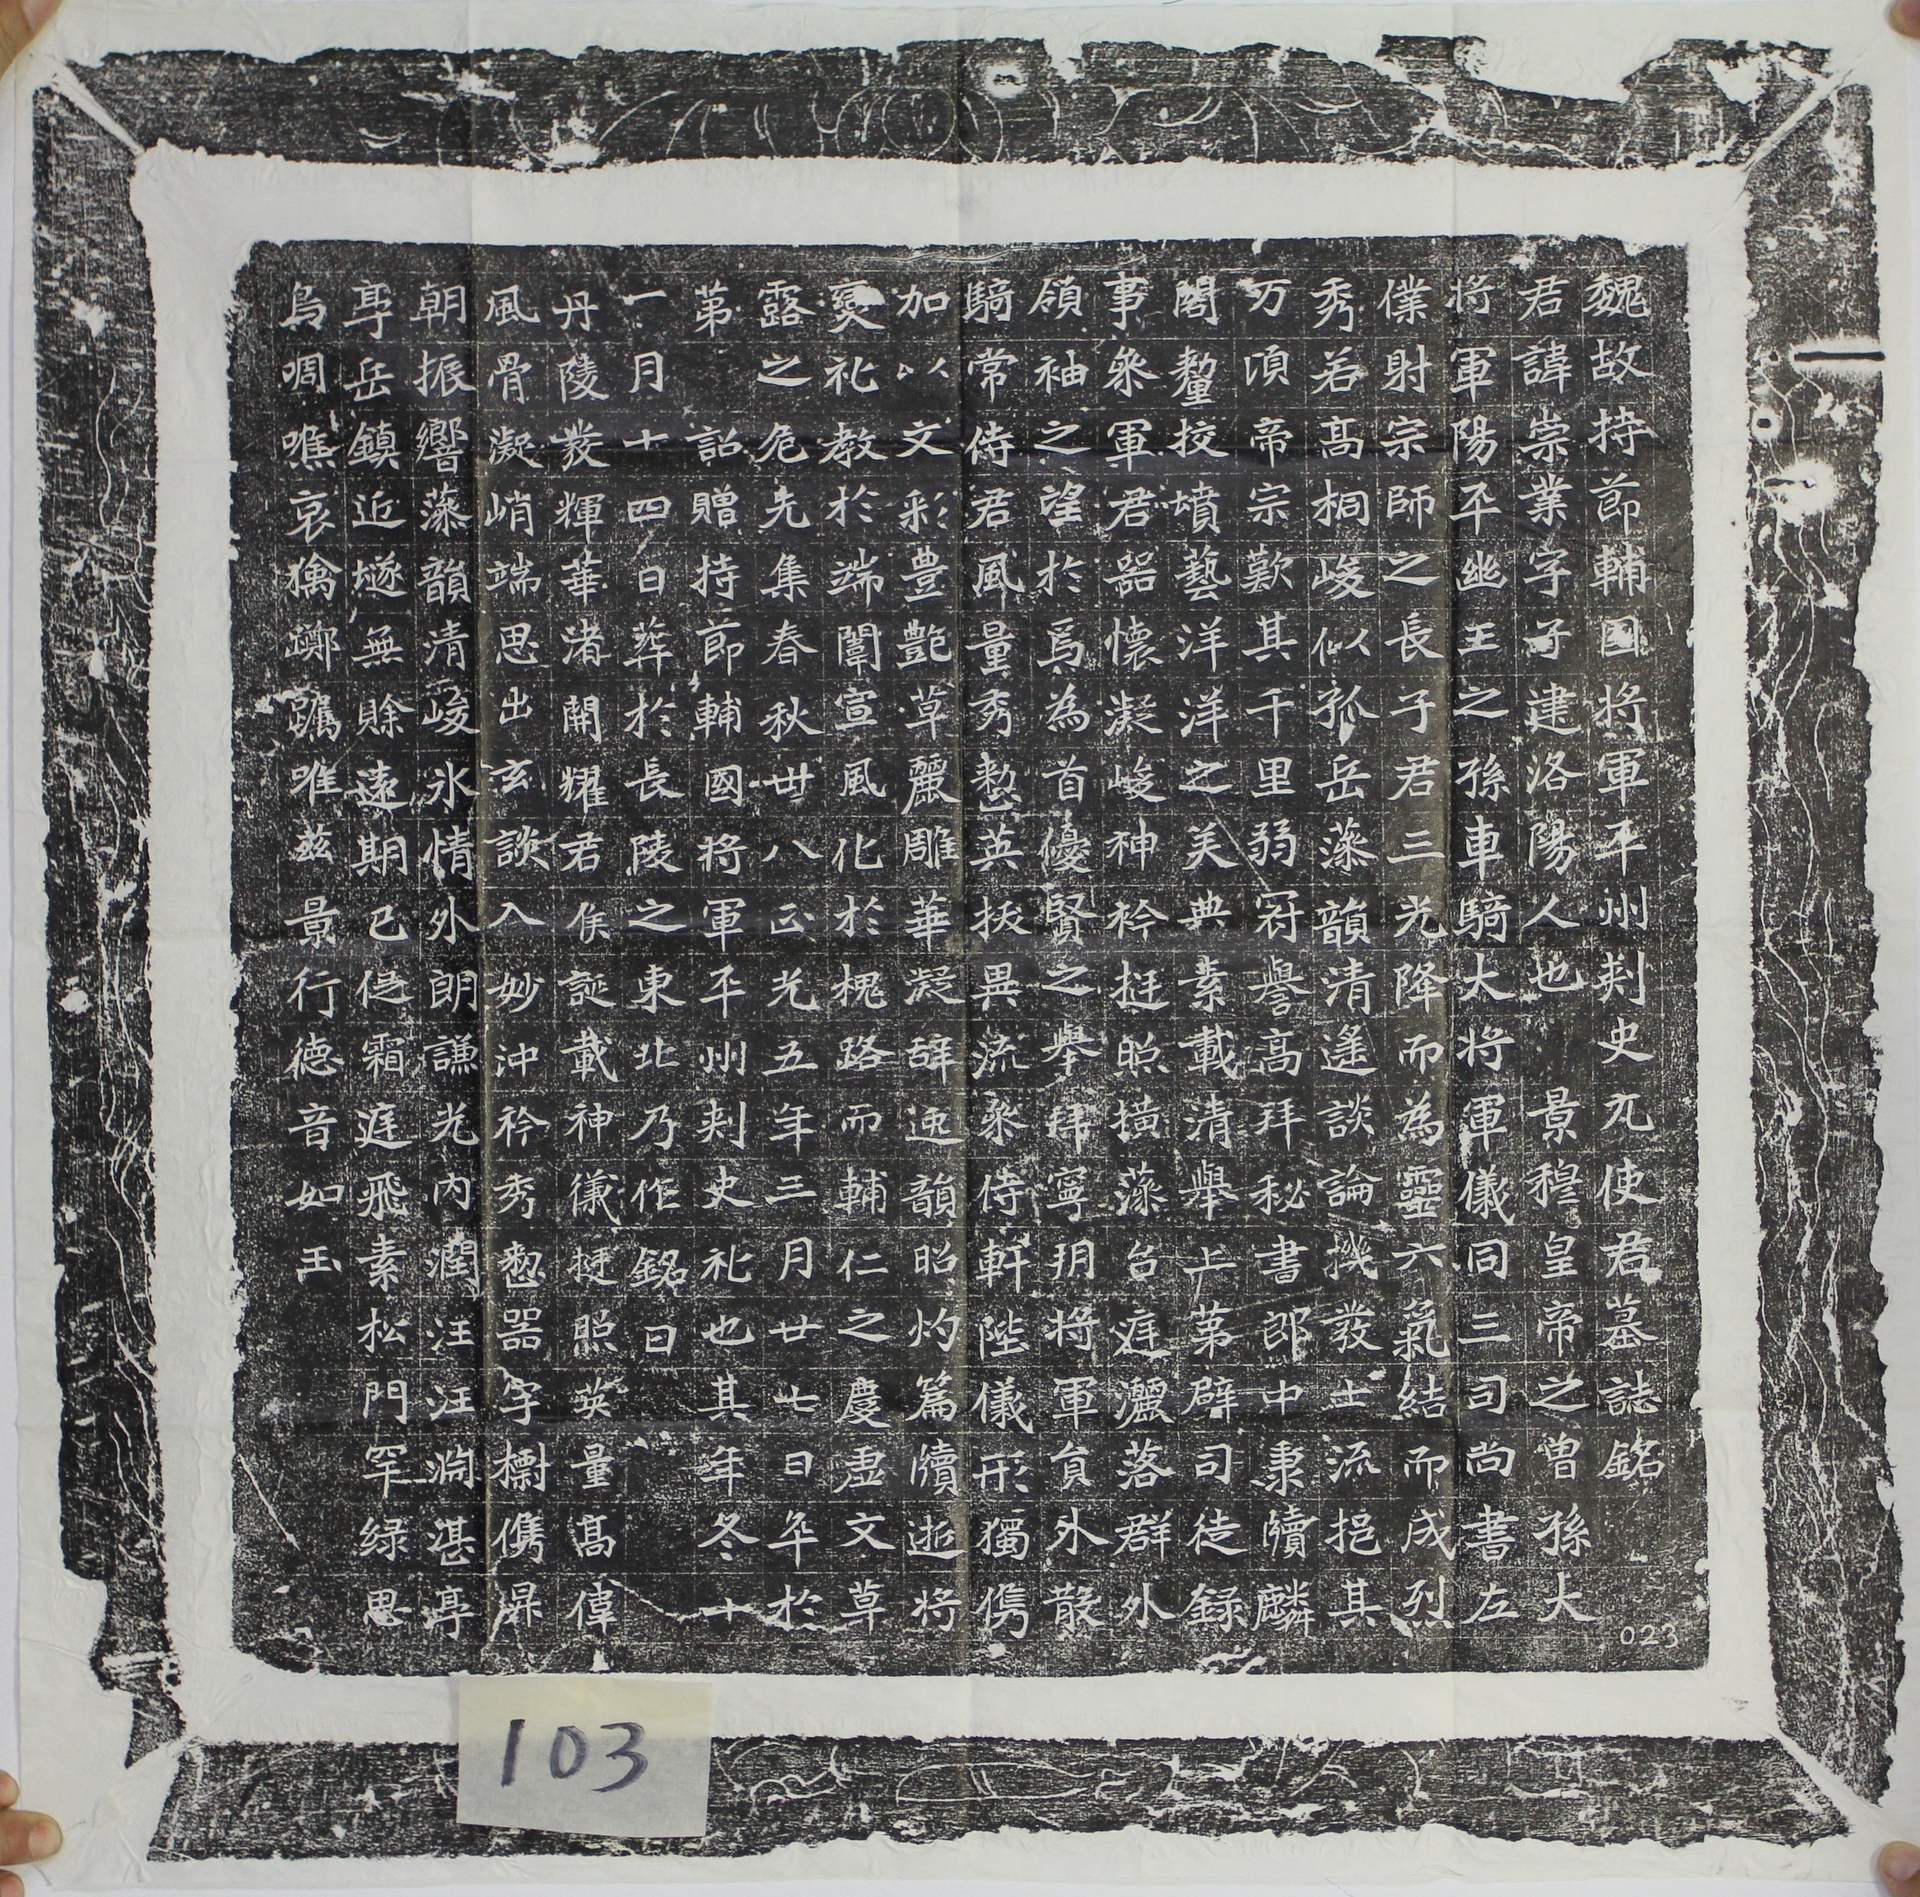 魏故持節輔国將軍平州刾史元使君墓誌銘
君諱崇業字子建洛陽人也景穆皇帝之曾孫大
將軍陽平幽王之孫車騎大將軍儀同三司尚書左
僕射宗師之長子君三光降而為靈六氣結而成烈
秀若髙桐峻似孤岳藻韻清遙談論機發士流挹其
万頃帝宗歎其千里弱冠譽高拜秘書郎中秉牘麟
閣釐挍墳藝洋洋之美典素載清舉上第辟司徒録
事叅軍君器懷凝峻神衿挺照摛藻台庭灑落群外
領袖之望於焉為首優賢之舉拜寧朔將軍貟外散
騎常侍君風量秀整英挨異流丞侍軒陛儀形獨儁
加以文彩豊艶草麗雕華凝辭逸韻昭灼篇牘逝將
爕礼教於端闈宣風化於槐路而輔仁之慶虛文草
露之危先集春秋卅八正光五年三月廿七日卒於
第詔贈持節輔國將軍平州刾史礼也其年冬十
一月十四日葬於長陵之東北乃作銘曰
丹陵發輝華渚開耀君侯誕載神儀挻照英量髙偉
風骨凝峭端思出玄談入妙沖衿秀整器字檦儁昇
朝振響藻韻清峻氷情外朗謙光內潤汪汪淵湛亭
亭岳鎮近墜無賒遠期已促霜庭飛素松門罕緑思
鳥啁噍哀擒躑躅唯兹景行德音如玉
023
103